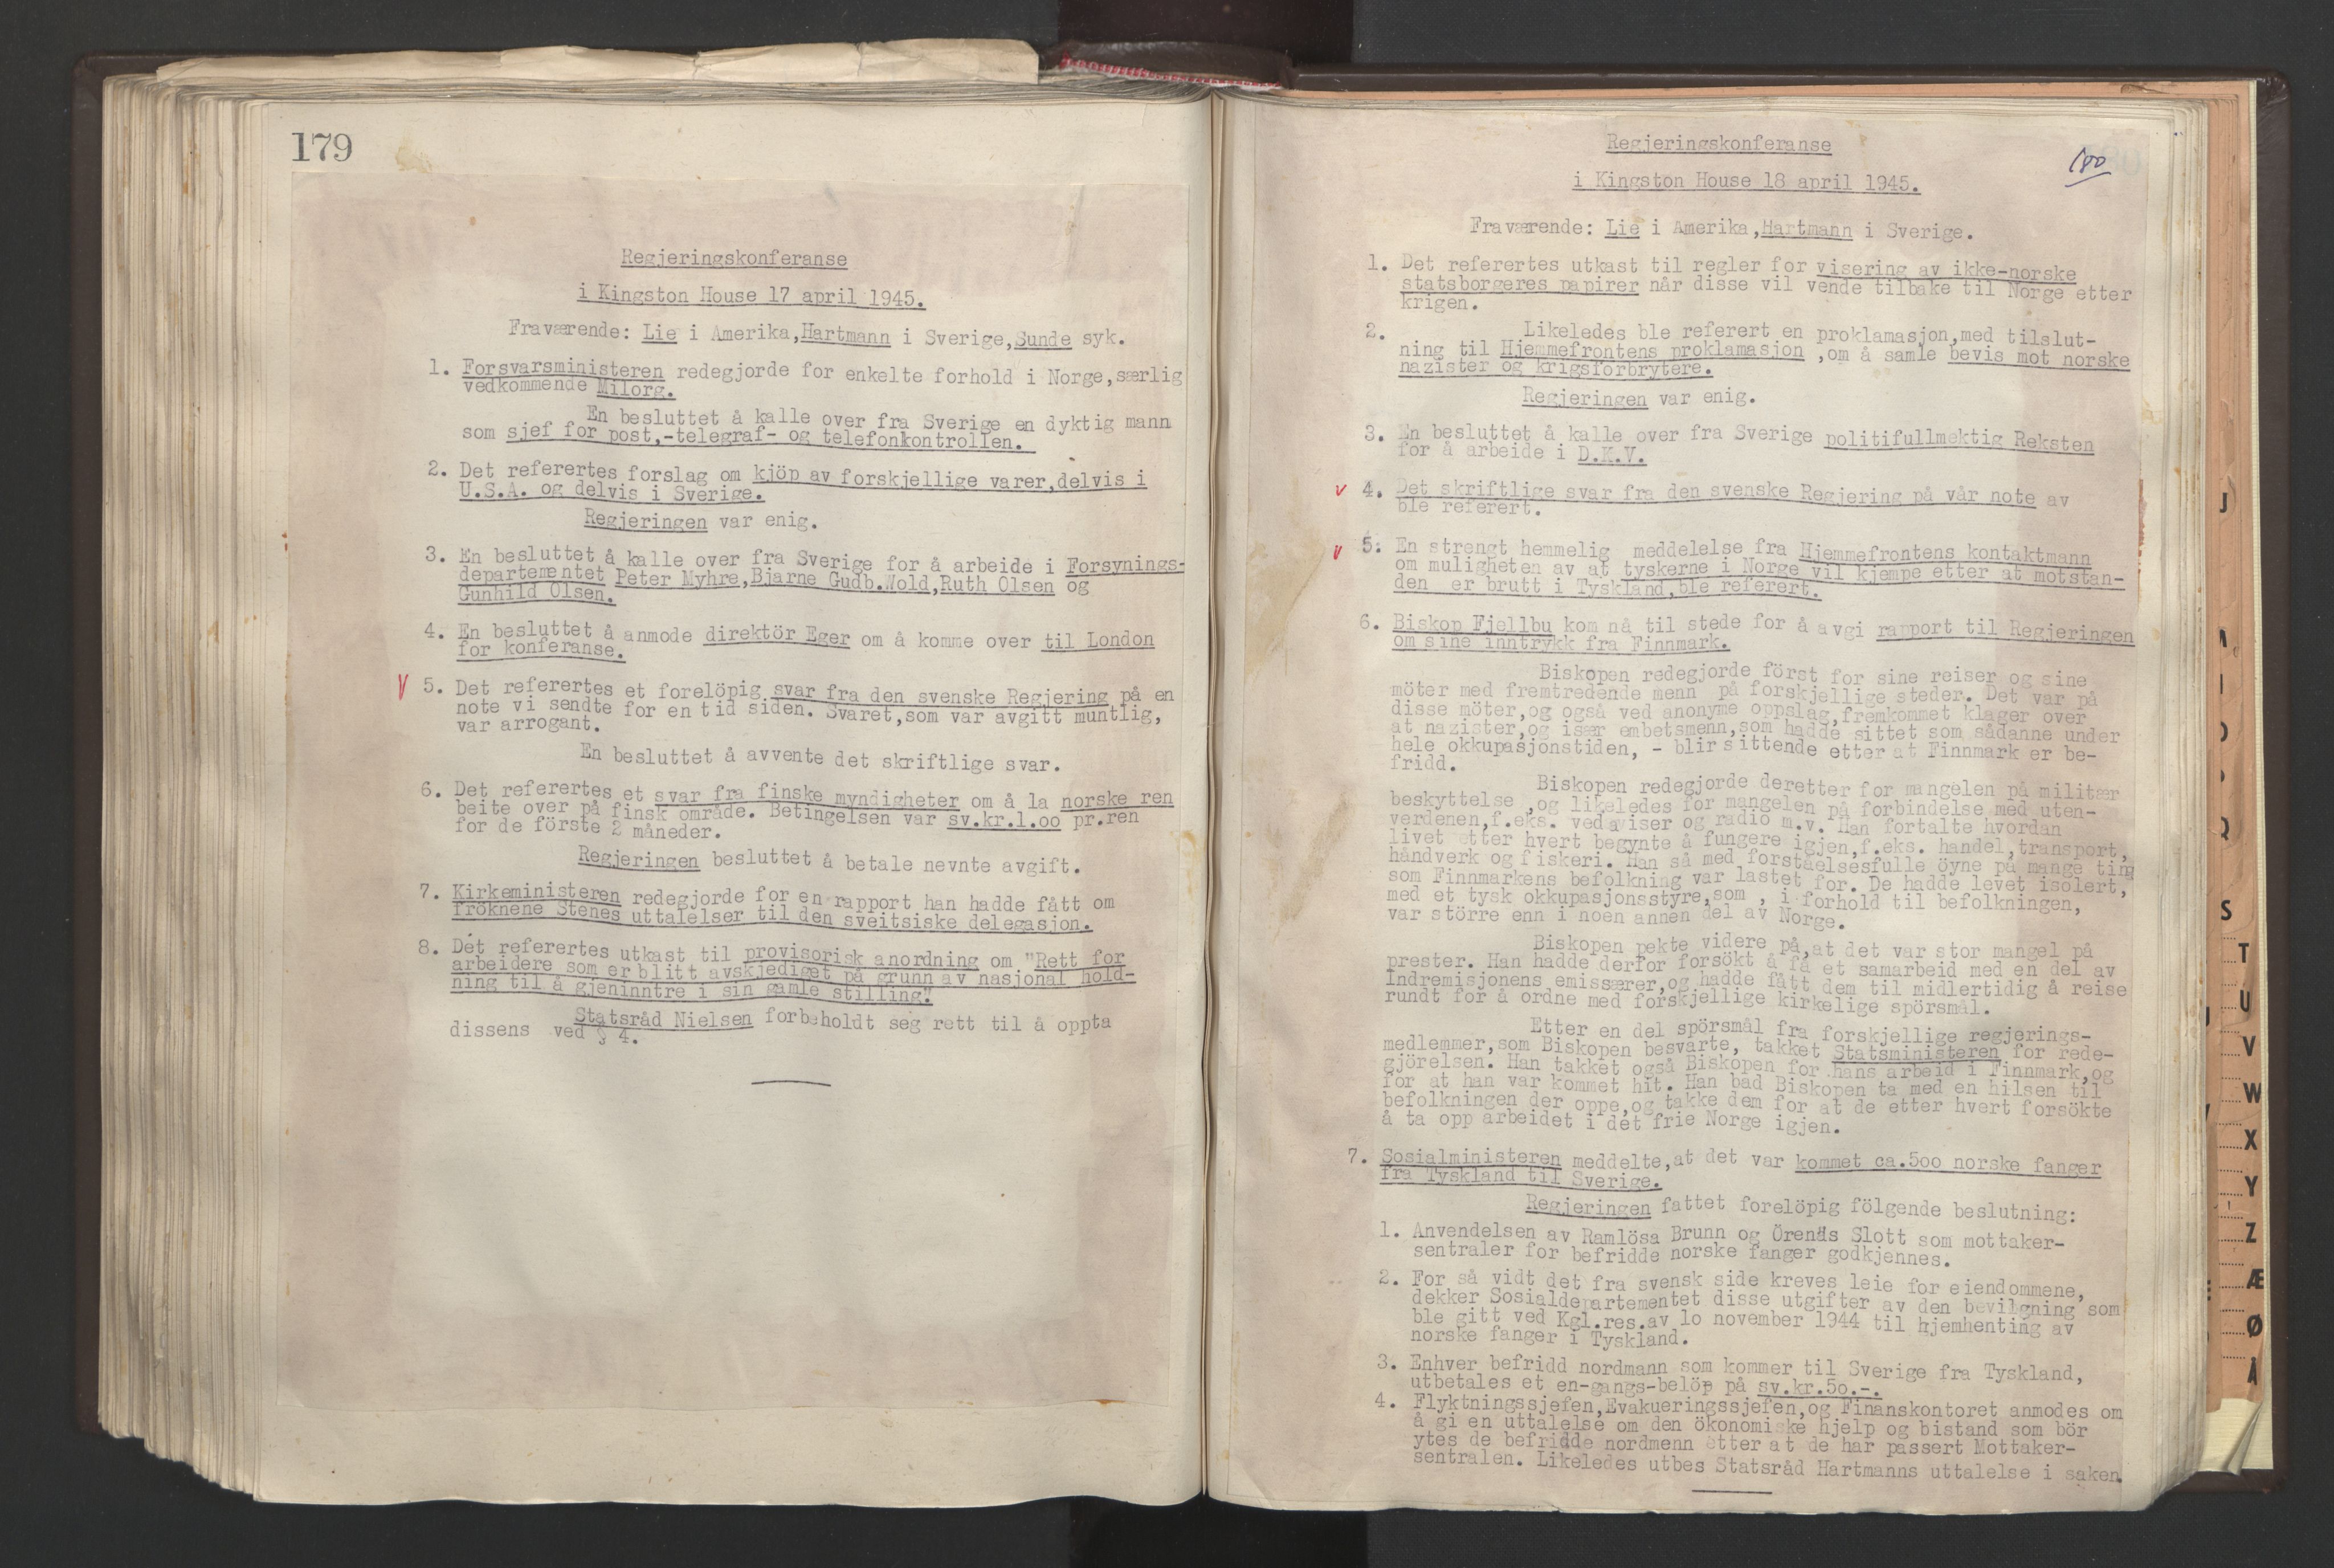 179
Regjeringskonferanse
i Kingston House 17 april 1945.
Fraværende: Lie i Amerika,Hartmann i Sverige,Sunde syk.
1. Forsvarsministeren redegjorde for enkelte forhold i Norge,særlig
vedkommende Milorg.
En besluttet å kalle over fra Sverige en dyktig mann
som sjef for post,-telegraf- og telefonkontrollen.
2. Det referertes forslag om kjöp av forskjellige varer,delvis i
U.S.A. og delvis i Sverige.
Regjeringen var enig.
3. En besluttet å kalle over fra Sverige for å arbeide i Forsynings-
departementet Peter Myhre,Bjarne Gudb.Wold,Ruth Olsen og
Gunhild Olsen.
4. En besluttet å anmode direktör Eger om å komme over til London
for konferanse.
V 5. Det referertes et forelöpig svar fra den svenske Regjering på en
note vi sendte for en tid siden. Svaret,som var avgitt muntlig,
var arrogant.
En besluttet å avvente det skriftlige svar.
6. Det referertes et svar fra finske myndigheter om å la norske ren
beite over på finsk område. Betingelsen var sv.kr.1.oo pr.ren
for de förste 2 måneder.
Regjeringen besluttet å betale nevnte avgift.
7. Kirkeministeren redegjorde for en rapport han hadde fått om
fröknene Stenes uttalelser til den sveitsiske delegasjon.
8. Det referertes utkast til provisorisk anordning om "Rett for
arbeidere som er blitt avskjediget på grunn av nasjonal hold-
ning til å gjeninntre i sin gamle stilling".
Statsråd Nielsen forbeholdt seg rett til å oppta
dissens ved § 4.
180
Regjeringskonferanse
i Kingston House 18 april 1945.
Fraværende: Lie i Amerika,Hartmann i Sverige.
1. Det referertes utkast til regler for visering av ikke-norske
statsborgeres papirer når disse vil vende tilbake til Norge etter
krigen.
2. Likeledes ble referert en proklamasjon,med tilslut-
ning til Hjemmefrontens proklamasjon ,om å samle bevis mot norske
nazister og krigsforbrytere.
Regjeringen var enig.
3. En besluttet å kalle over fra Sverige politifullmektig Reksten
for å arbeide i D.K.V.
V 4. Det skriftlige svar fra den svenske Regjering på vår note av
ble referert.
V 5. En strengt hemmelig meddelelse fra Hjemmefrontens kontaktmann
om muligheten av at tyskerne i Norge vil kjempe etter at motstan-
den er brutt i Tyskland,ble referert.
6. Biskop Fjellbu kom nå til stede for å avgi rapport til Regjeringen
om sine inntrykk fra Finnmark.
Biskopen redegjorde först for sine reiser og sine
möter med fremtredende menn på forskjellige steder. Det var på
disse möter,og også ved anonyme oppslag,fremkommet klager over
at nazister,og især embetsmenn,som hadde sittet som sådanne under
hele okkupasjonstiden, - blir sittende etter at Finnmark er be-
fridd.
Biskopen redegjorde deretter for mangelen på militær
beskyttelse ,og likeledes for mangelen på forbindelse med uten-
verdenen,f.eks. ved aviser og radio m.v. Han fortalte hvordan
livet etter hvert begynte å fungere igjen,f.eks. handel,transport,
håndverk og fiskeri. Han så med forståelsesfulle öyne på mange ting
som Finnmarkens befolkning var lastet for. De hadde levet isolert,
med et tysk okkupasjonsstyre,som , i forhold til befolkningen,
var större enn i noen annen del av Norge.
Biskopen pekte videre på,at det var stor mangel på
prester. Han hadde derfor forsökt å få et samarbeid med en del av
Indremisjonens emissærer,og hadde fått dem til midlertidig å reise
rundt for å ordne med forskjellige kirkelige spörsmål.
Etter en del spörsmål fra forskjellige regjerings-
medlemmer,som Biskopen besvarte, takket Statsministeren for rede-
gjörelsen. Han takket også Biskopen for hans arbeid i Finnmark,og
for at han var kommet hit. Han bad Biskopen ta med en hilsen til
befolkningen der oppe,og takke dem for at de etter hvert forsökte
å ta opp arbeidet i det frie Norge igjen.
7. Sosialministeren meddelte,at det var kommet ca.5oo norske fanger
fra Tyskland til Sverige.
Regjeringen fattet forelöpig fölgende beslutning:
1. Anvendelsen av Ramlösa Brunn og Örenäs Slott som mottaker-
sentraler for befridde norske fanger godkjennes.
2. For så vidt det fra svensk side kreves leie for eiendommene,
dekker Sosialdepartementet disse utgifter av den bevilgning som
ble gitt ved Kgl.res.av 1o november 1944 til hjemhenting av
norske fanger i Tyskland.
3. Enhver befridd nordmann som kommer til Sverige fra Tyskland,
utbetales et en-gangs-belöp på sv.kr.5o.-.
4. Flyktningssjefen,Evakueringssjefen,og Finanskontoret anmodes om
å gi en uttalelse om den ökonomiske hjelp og bistand som bör
ytes de befridde nordmenn etter at de har passert Mottaker-
sentralen. Likeledes utbes Statsråd Hartmanns uttalelse i saken.
J
R
S
T
U
V
W
X
Y
Z
Æ
Ø
Å